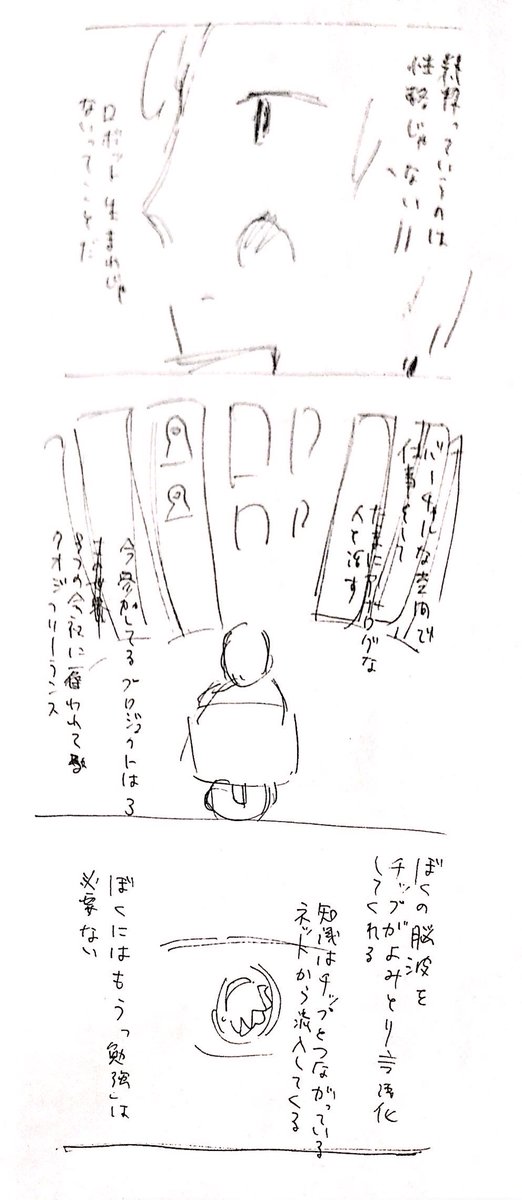 っていうのは
性格じゃない
ロボット生まれじゃ
ないってことだ
バーチャルな空間で
仕事をして
たまにアナログな
人と話す
今参加してるプロジェクトには3
つの会社に雇われて
クオジフリーランス
ぼくの脳波を
チップがよみとり言語化
してくれる
知識はチップとつながっている
ネットから流入してくる
ぼくにはもう「勉強」は
必要ない